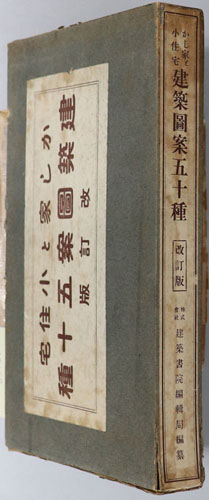 かし家と小住宅
建築圖案五十種
改訂版
かし家と
小住宅
建築圖案五十種
改訂版
株式
會社
建築書院編輯局編纂